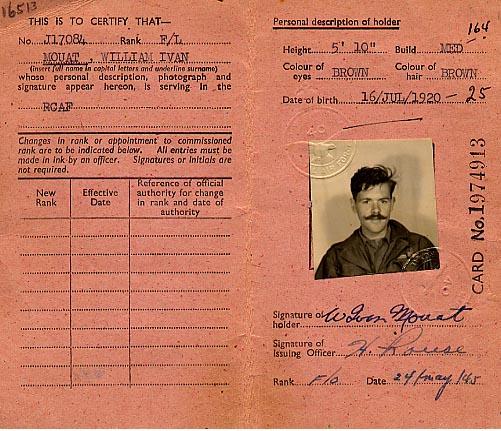 16513
THIS IS TO CERTIFY THAT—
No. J17084 Rank F/L
MOUAT, WILLIAM IVAN
(insert full name in capital letters and underline surname)
whose personal description, photograph and
signature appear hereon, is serving in the
RCAF
Changes in rank or appointment to commissioned
rank are to be indicated below. All entries must be
made in ink by an officer. Signatures or initials are
not required.
New Rank
Effective Date
Reference of official authority for change in rank and date of authority
Personal description of holder
164
Height 5' 10" Build MED
Colour of eyes BROWN Colour of hair BROWN
Date of birth 16/JUL/1920 - 25
CARD No. 1974913
Signature of holder W Ivan Mouat
Signature of Issuing Officer
Rank F/O Date 24/May/45